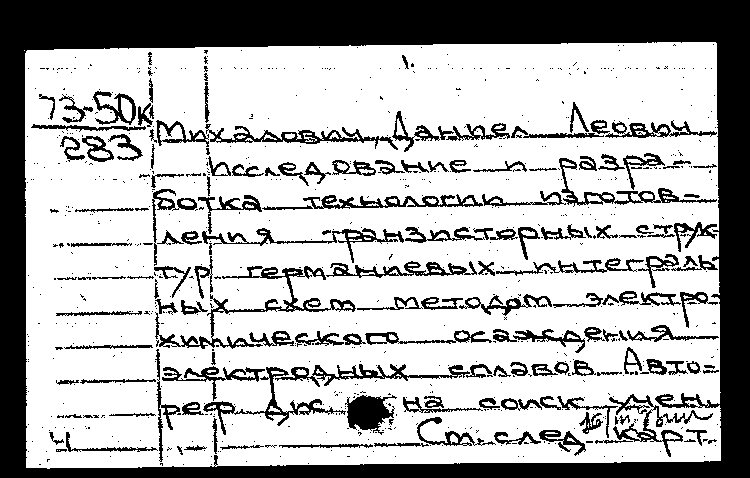 1.
73-50к
283
Михалович, Даниел Леович
Исследование и разра-
ботка технологии изготов-
ления транзисторных струк-
тур германиевых интеграль-
ных схем методом электро-
химического осаждения
электродных сплавов Авто-
реф дис. на соиск учен.
Ст. след карт.
ч